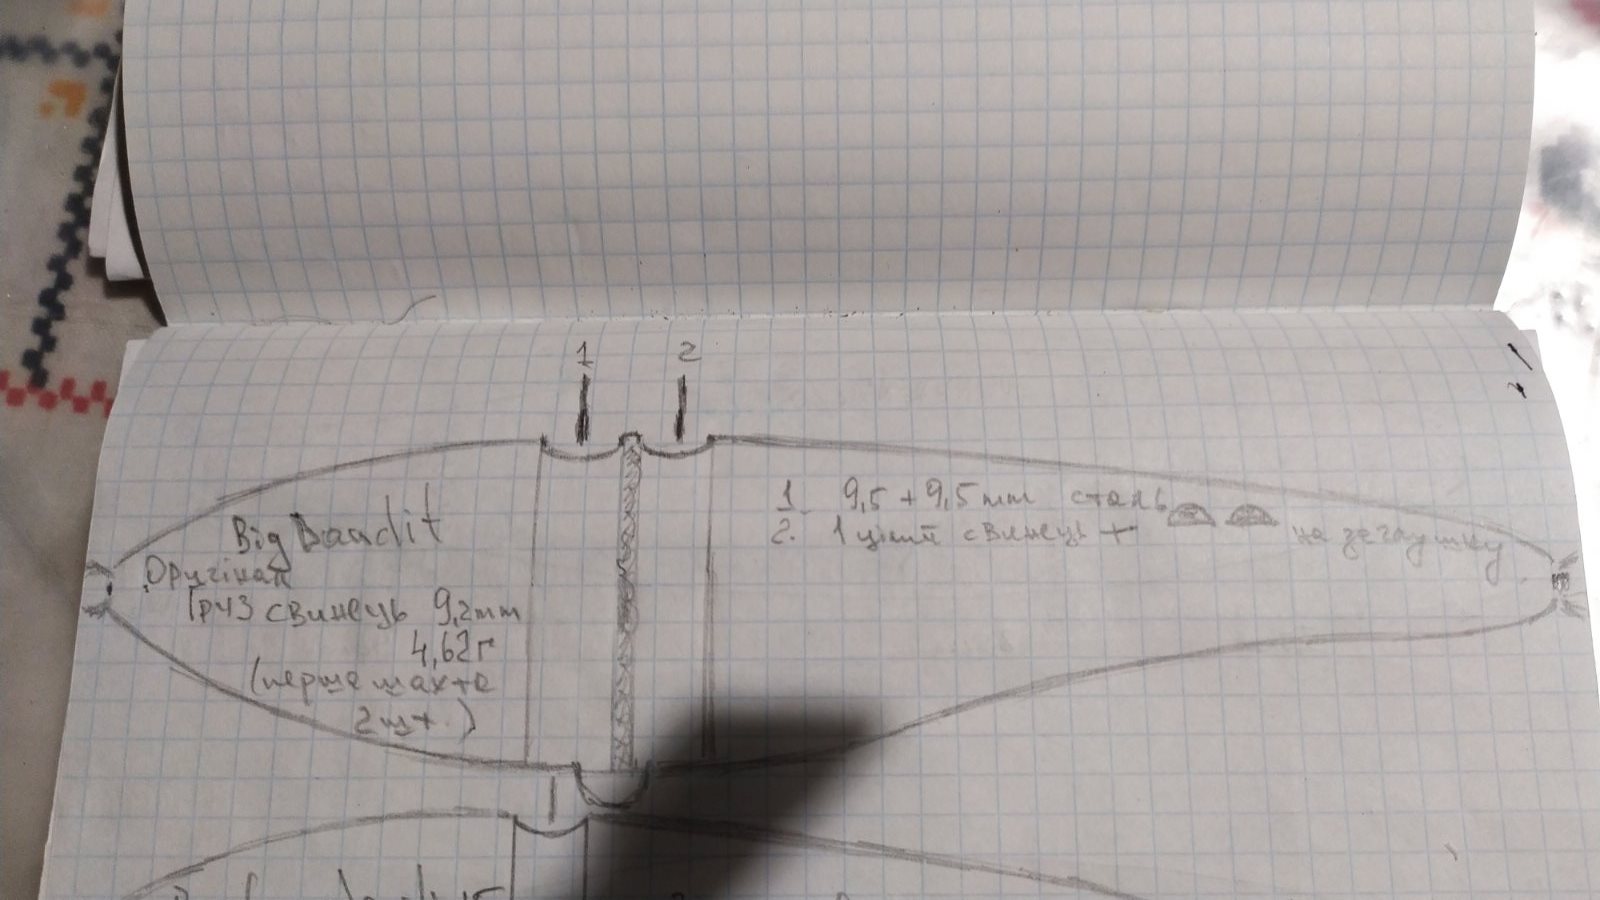 1 2
Big Bandit
Оригінал
Груз свинець 9,2mm
4,62г
(перша шахта
2шт.)
1. 9,5 + 9,5mm сталь
2. 1 цілий свинець + на заглушку